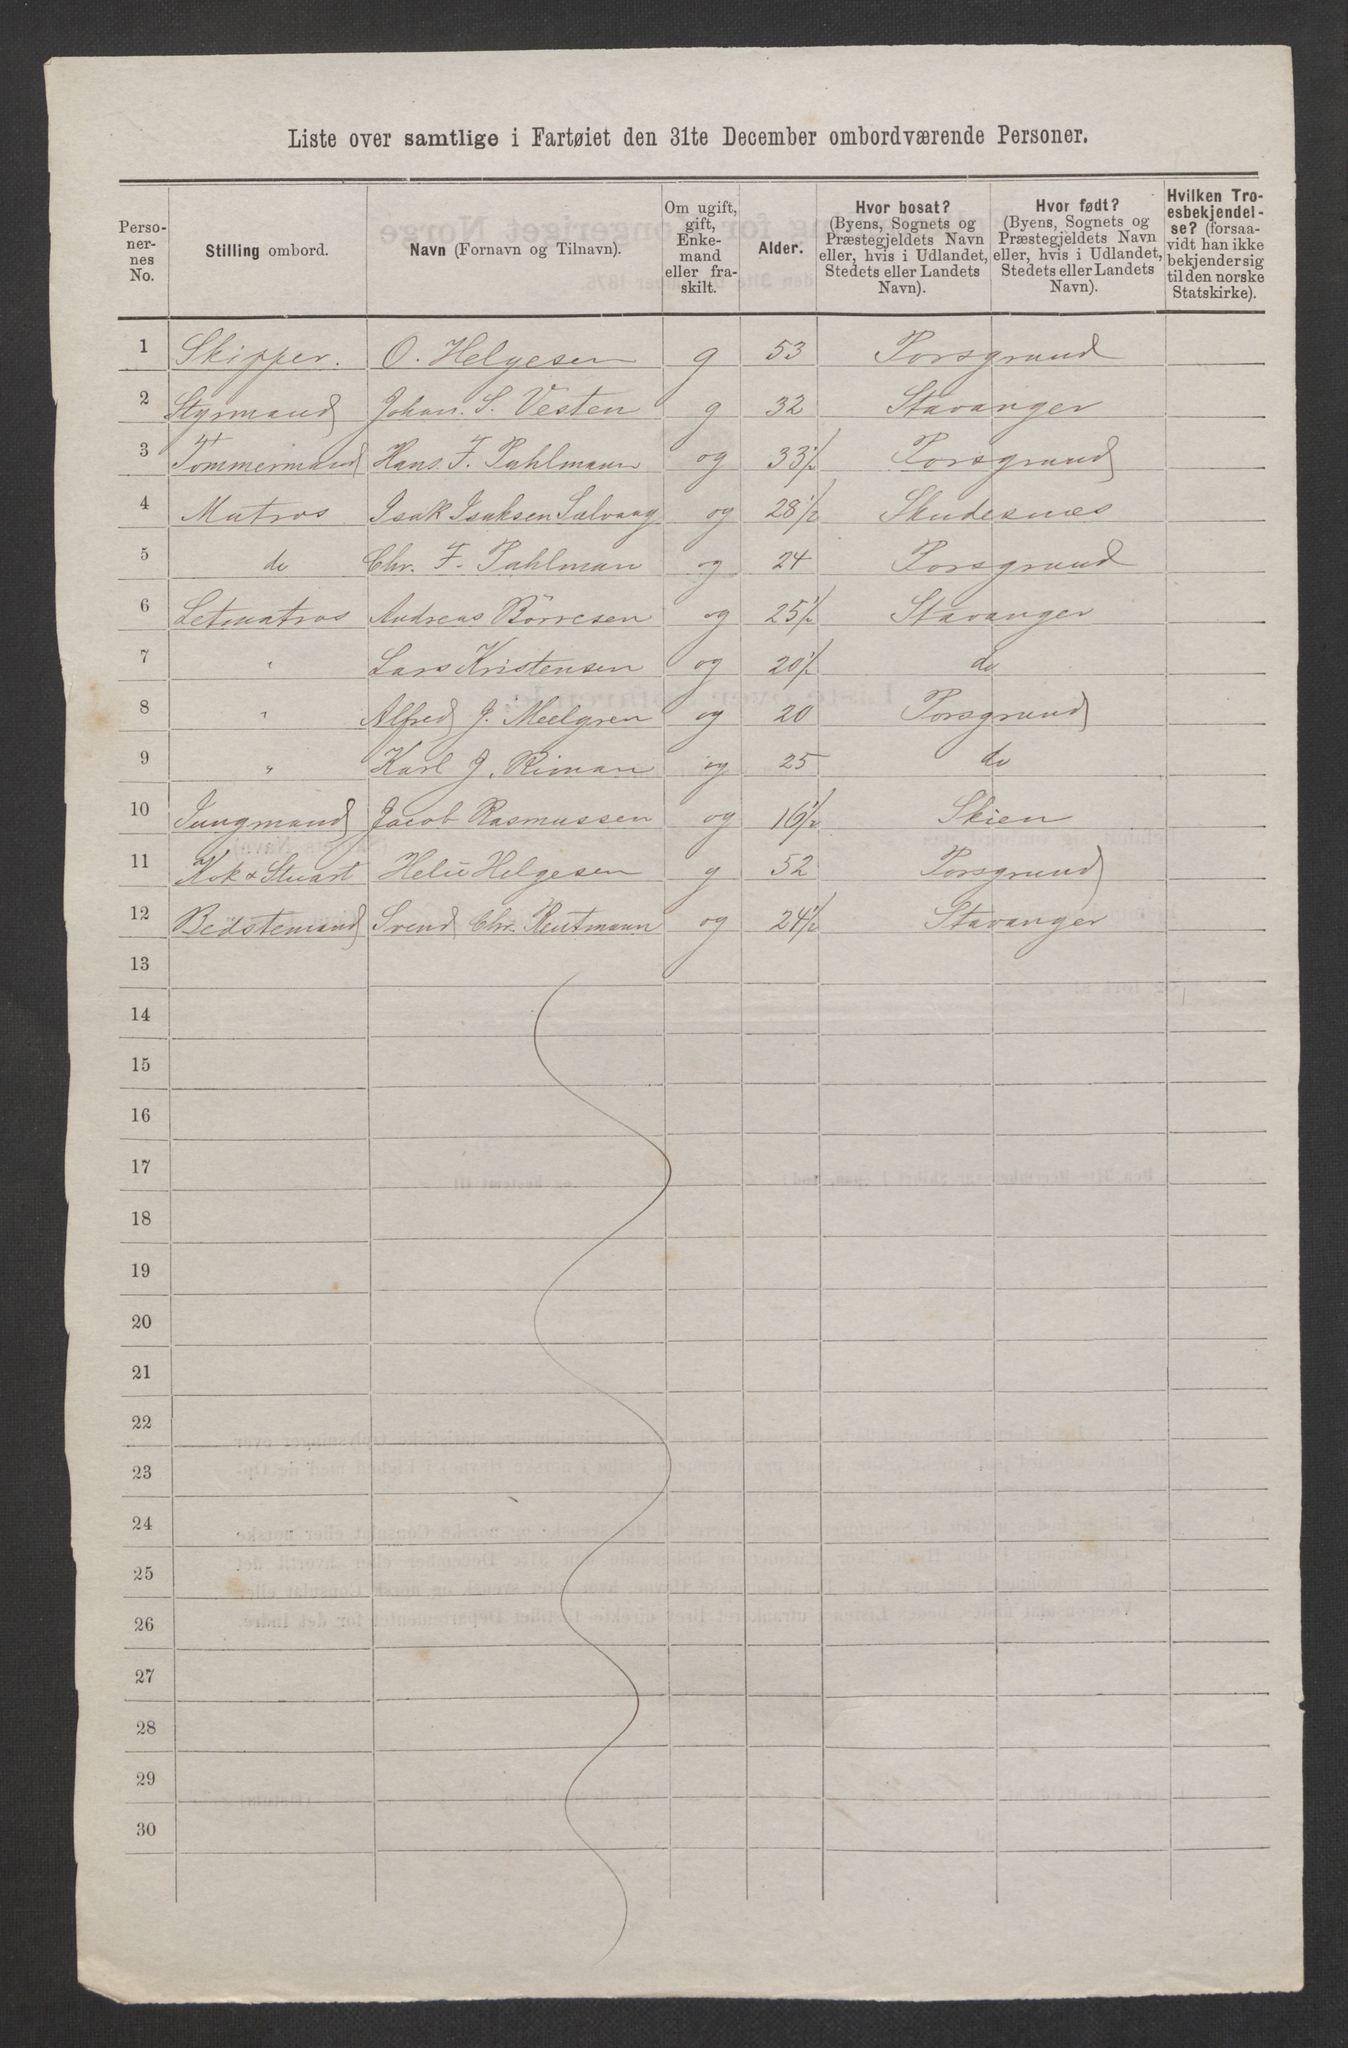 Liste over samtlige i Fartøiet den 31te December ombordværende Personer.
Perso-
ner-
nes
No.
Stilling ombord.
Navn (Fornavn og Tilnavn).
Om ugift,
gift,
Enke-
mand
eller fra-
skilt.
Alder.
Hvor bosat?
(Byens, Sognets og
Præstegjeldets Navn
eller, hvis i Udlandet,
Stedets eller Landets
Navn).
Hvor født?
(Byens, Sognets og
Præstegjeldets Navn
eller, hvis i Udlandet,
Stedets eller Landets
Navn).
Hvilken Tro-
esbekjendel-
se? (forsaa-
vidt han ikke
bekjender sig
til den norske
Statskirke).
1 Skipper. O. Helgesen g 53 Porsgrund
2 Styrmand Johan. S. Vesten g 32 Stavanger
3 Tømmermand Hans. F. Pahlmann ug 33½ Porsgrund
4 Matros Isak Isaksen Salvaag ug 28½ Skudesnæs
5 do Chr. F. Pahlman ug 24 Porsgrund
6 Letmatros Andreas Börresen ug 25½ Stavanger
7 " Lars Kristensen ug 20½ do
8 " Alfred J. Meelgren ug 20 Porsgrund
9 " Karl J. Riman ug 25 do
10 Jungmand Jacob Rasmussen ug 16½ Skien
11 Kok & Stuart Helie Helgesen g 52 Porsgrund
12 Bedstemand Svend Chr. Reutmann ug 24½ Stavanger
13
14
15
16
17
18
19
20
21
22
23
24
25
26
27
28
29
30